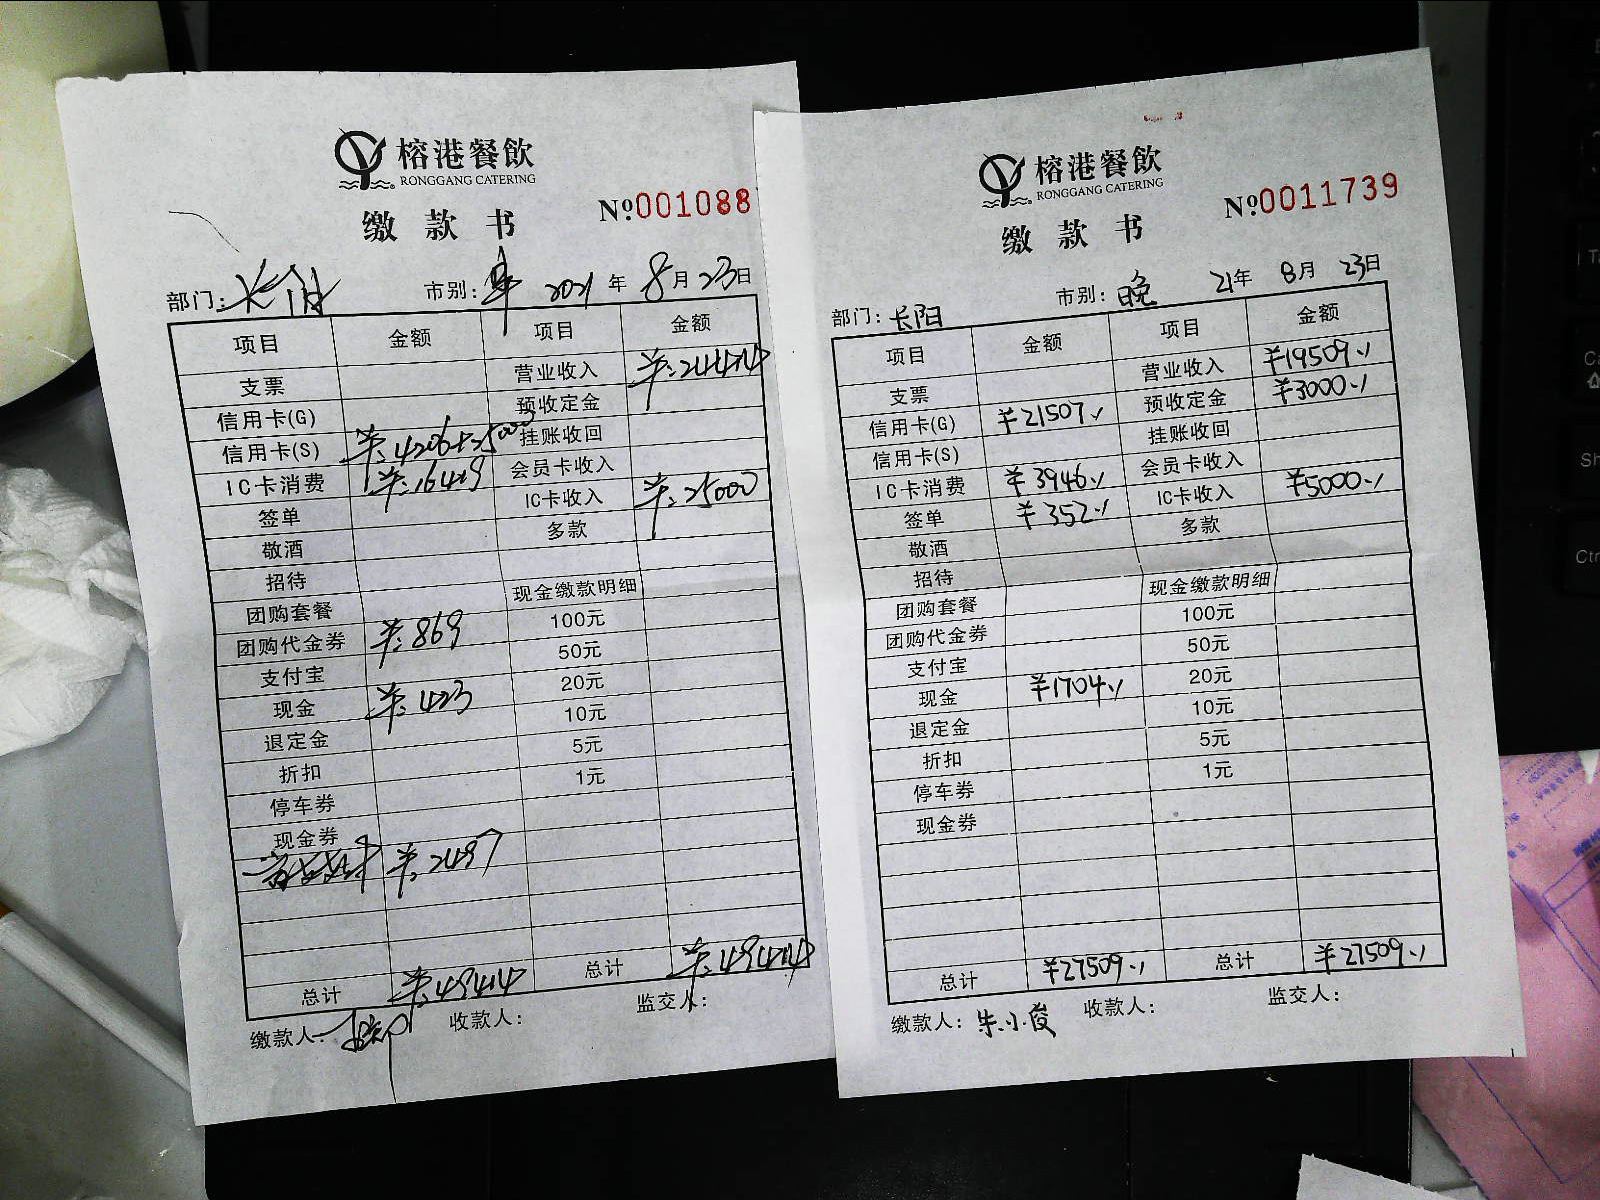 榕港餐飲
RONGGANG CATERING
缴款书
№001088
部门: 长阳 市别: 2021年8月23日
项目 金额 项目 金额
支票 营业收入 ¥:24414
信用卡(G) 预收定金
信用卡(S) ¥:4206+25000 挂账收回
IC卡消费 ¥:16419 会员卡收入
签单 IC卡收入 ¥:25000
敬酒 多款
招待
团购套餐 现金缴款明细
团购代金券 ¥:869 100元
支付宝 50元
现金 ¥:423 20元
退定金 10元
折扣 5元
停车券 1元
现金券
¥:2497
总计 ¥:49414 总计 ¥:49414
缴款人: 收款人: 监交人:
榕港餐飲
RONGGANG CATERING
缴款书
№0011739
部门: 长阳 市别: 晚 21年8月23日
项目 金额 项目 金额
支票 营业收入 ¥19509
信用卡(G) ¥21507 预收定金 ¥3000
信用卡(S) 挂账收回
IC卡消费 ¥3946 会员卡收入
签单 ¥352 IC卡收入 ¥5000
敬酒 多款
招待
团购套餐 现金缴款明细
团购代金券 100元
支付宝 50元
现金 ¥1704 20元
退定金 10元
折扣 5元
停车券 1元
现金券
总计 ¥27509 总计 ¥27509
缴款人: 朱小俊 收款人: 监交人: